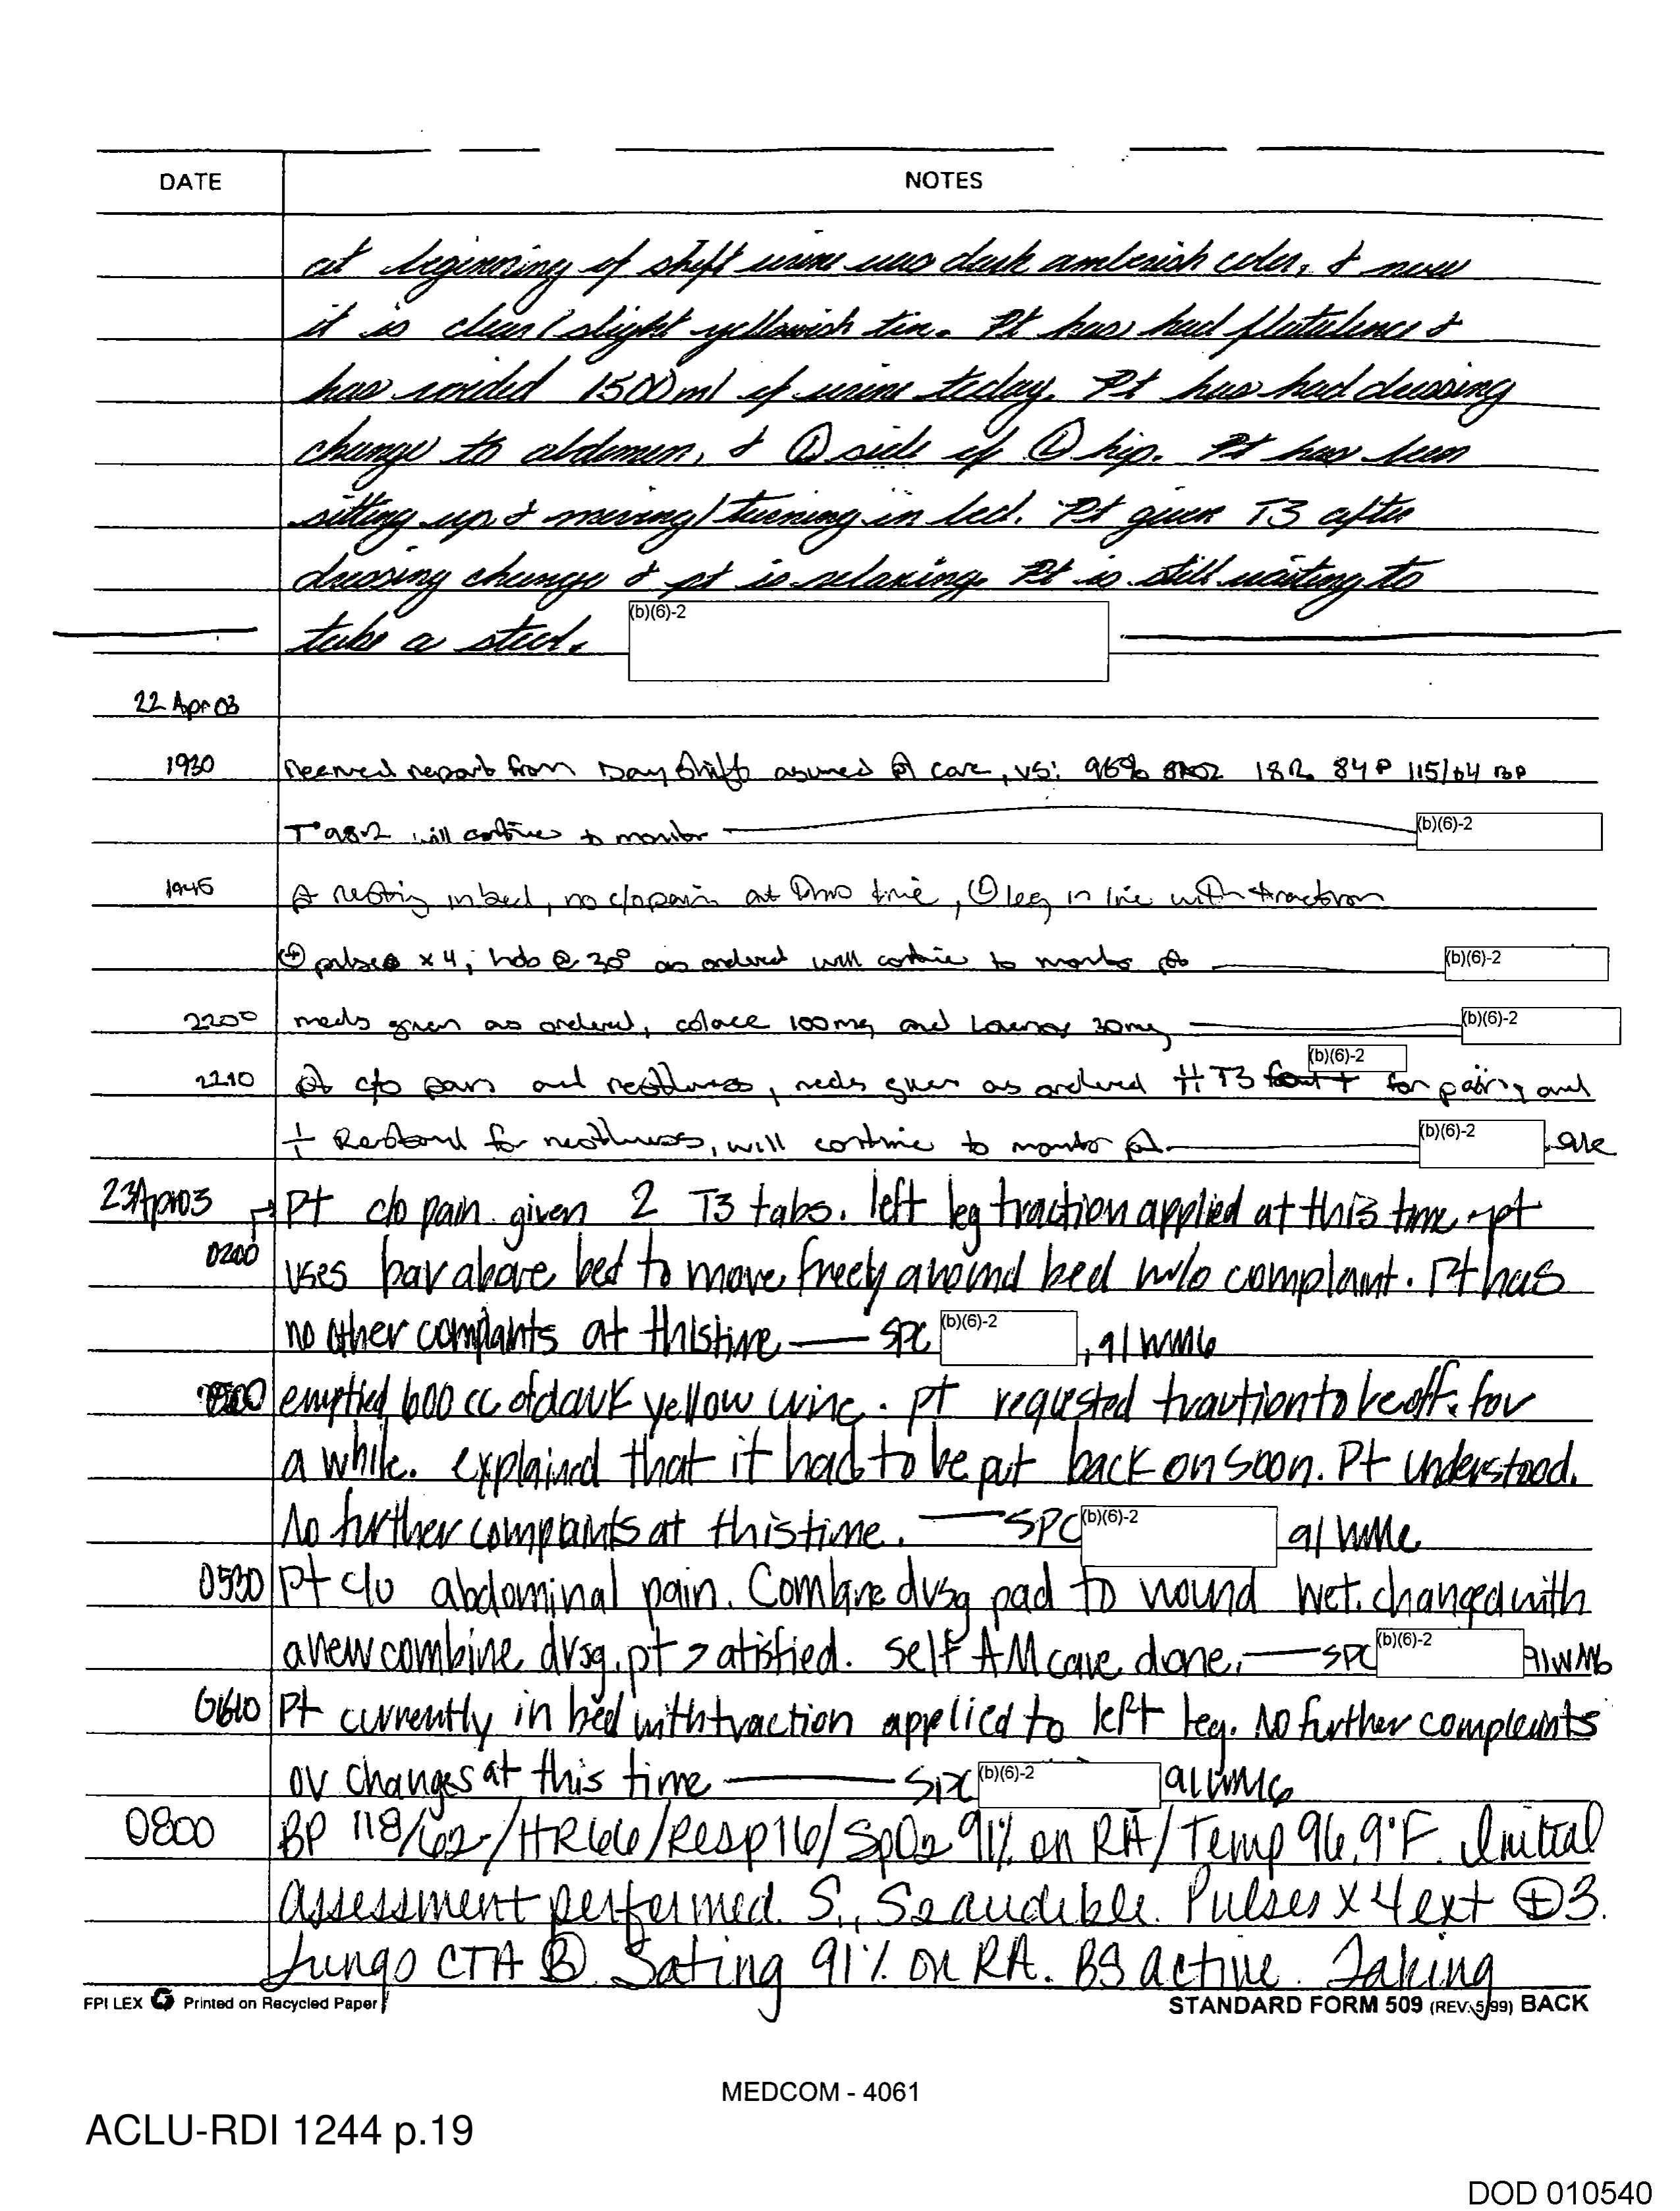 DATE NOTES
at beginning of shift urine was dark amberish color, & now
it is clear/slight yellowish tin. Pt has had flatulence &
has voided 1500ml of urine today. Pt has had dressing
change to abdomen, & Ⓛ side of Ⓛ hip. Pt has been
sitting up & moving/turning in bed. Pt given T3 after
dressing change & pt is relaxing. Pt is still waiting to
take a stool. (b)(6)-2
22 Apr 03
1930 Received report from Day shift assumed pt care, VS: 96% SAO2 18R 84P 115/64 BP
T 98.2 will continue to monitor (b)(6)-2
1945 pt resting in bed, no c/o pain at this time, Ⓛ leg in line with traction
⊕ pulses x 4, hob @ 30° as ordered will continue to monitor pt (b)(6)-2
2200 meds given as ordered, colace 100mg and Lovenox 30mg (b)(6)-2
2210 pt c/o pain and restlessness, meds given as ordered T3 (b)(6)-2 for pain, and
Restoril for restlessness, will continue to monitor pt (b)(6)-2
23Apr03 Pt c/o pain. given 2 T3 tabs. left leg traction applied at this time. pt
0200 uses bar above bed to move freely around bed w/o complaint. Pt has
no other complaints at this time — SPC (b)(6)-2, 91WM6
emptied 600 cc of dark yellow urine. pt requested traction to be off for
a while. explained that it had to be put back on soon. Pt understood.
No further complaints at this time. — SPC (b)(6)-2 91WM6
0530 Pt c/o abdominal pain. Combine drsg pad to wound wet. changed with
a new combine drsg. pt satisfied. self AM care done. — SPC (b)(6)-2 91WM6
0610 Pt currently in bed with traction applied to left leg. No further complaints
or changes at this time — SPC (b)(6)-2 91WM6
0800 BP 118/62/HR66/Resp16/SpO2 91% on RA/Temp 96.9°F. Initial
assessment performed. S1, S2 audible. Pulses x 4 ext ⊕3.
Lungs CTA Ⓑ. Sating 91% on RA. BS active. Taking
FPI LEX Printed on Recycled Paper STANDARD FORM 509 (REV. 5/99) BACK
MEDCOM - 4061
ACLU-RDI 1244 p.19
DOD 010540